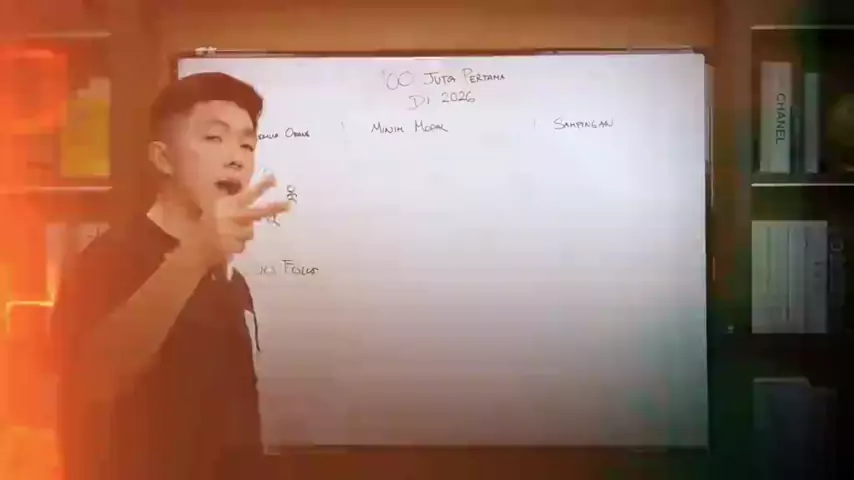 100 JUTA PERTAMA
DI 2026
ORANG
MINIM MODAL
SAMPINGAN
CHANEL